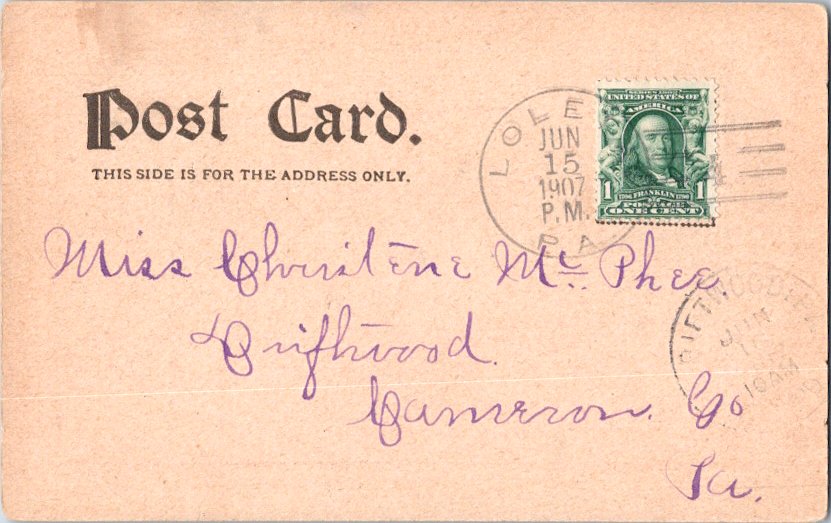 Post Card.
THIS SIDE IS FOR THE ADDRESS ONLY.
LOLE
JUN
15
1907
P.M.
PA
SERIES 1902
UNITED STATES OF
AMERICA
1 1706 FRANKLIN 1790 1
POSTAGE
ONE CENT
Miss Christene Mc Phee
Driftwood
Cameron Co
Pa.
JUN
10AM